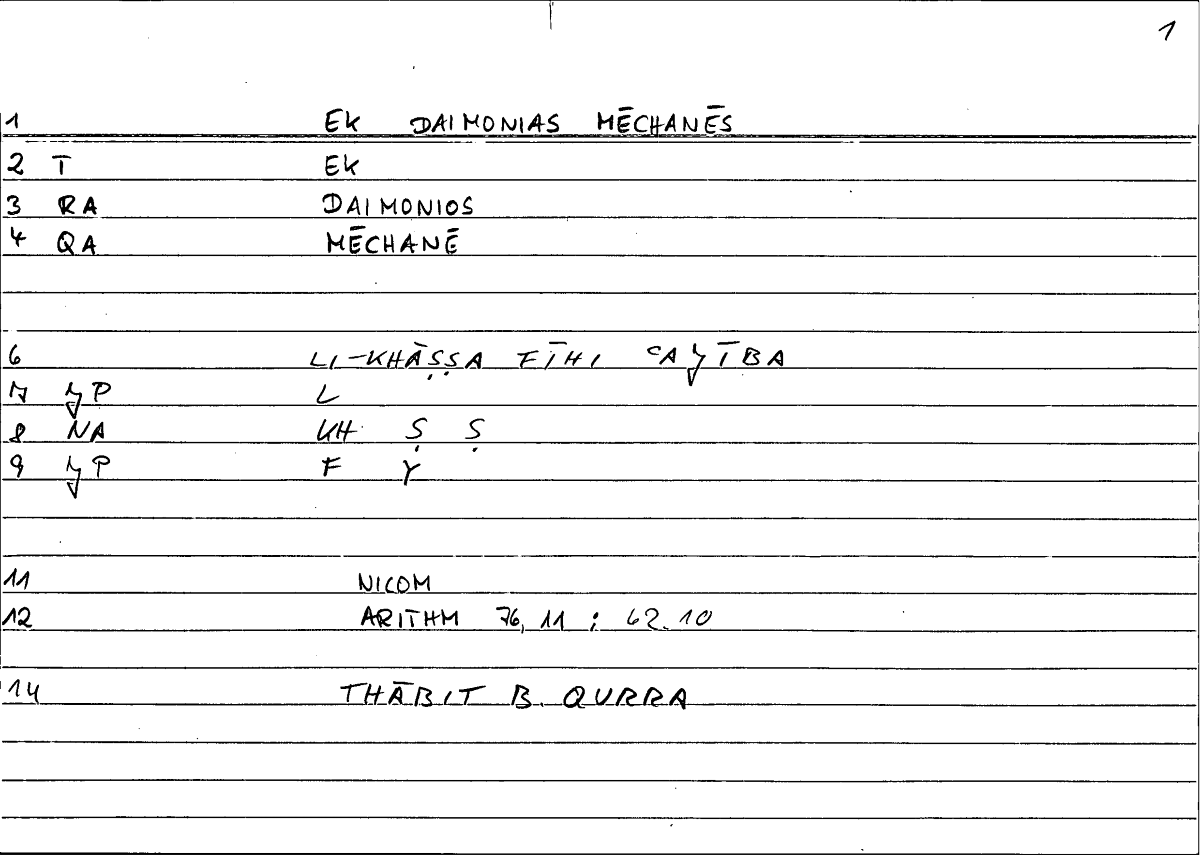 1
1 EK DAIMONIAS MĒCHANĒS
2 T EK
3 RA DAIMONIOS
4 QA MĒCHANĒ
6 LI-KHĀṢṢA FĪHI ʿAJĪBA
7 JP L
8 NA KH Ṣ Ṣ
9 JP F Y
11 NICOM
12 ARITHM 76, 11 ; 62.10
14 THĀBIT B. QURRA